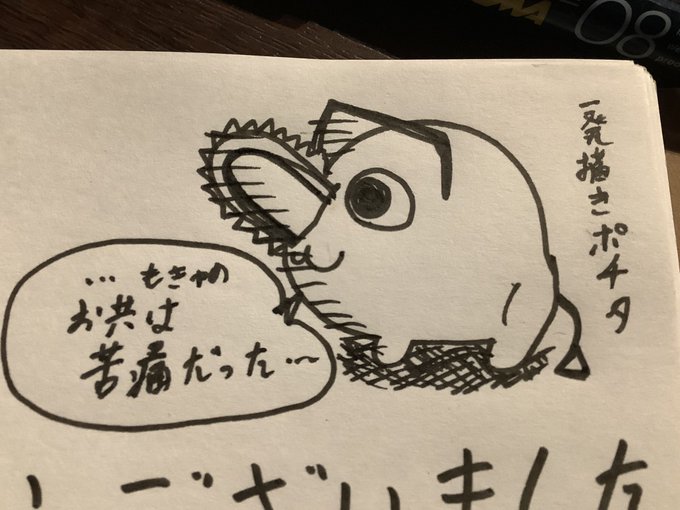 一発描きポチタ
…もきゅの
お供は
苦痛だった…
ございました
GMA
08